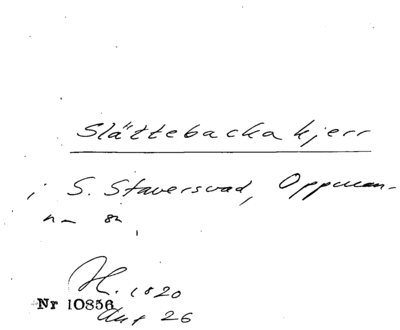 Slättebacka kjerr
i S. Staversvad, Oppman-
na sn,
H. 1820
Nr 10856
Akt 26